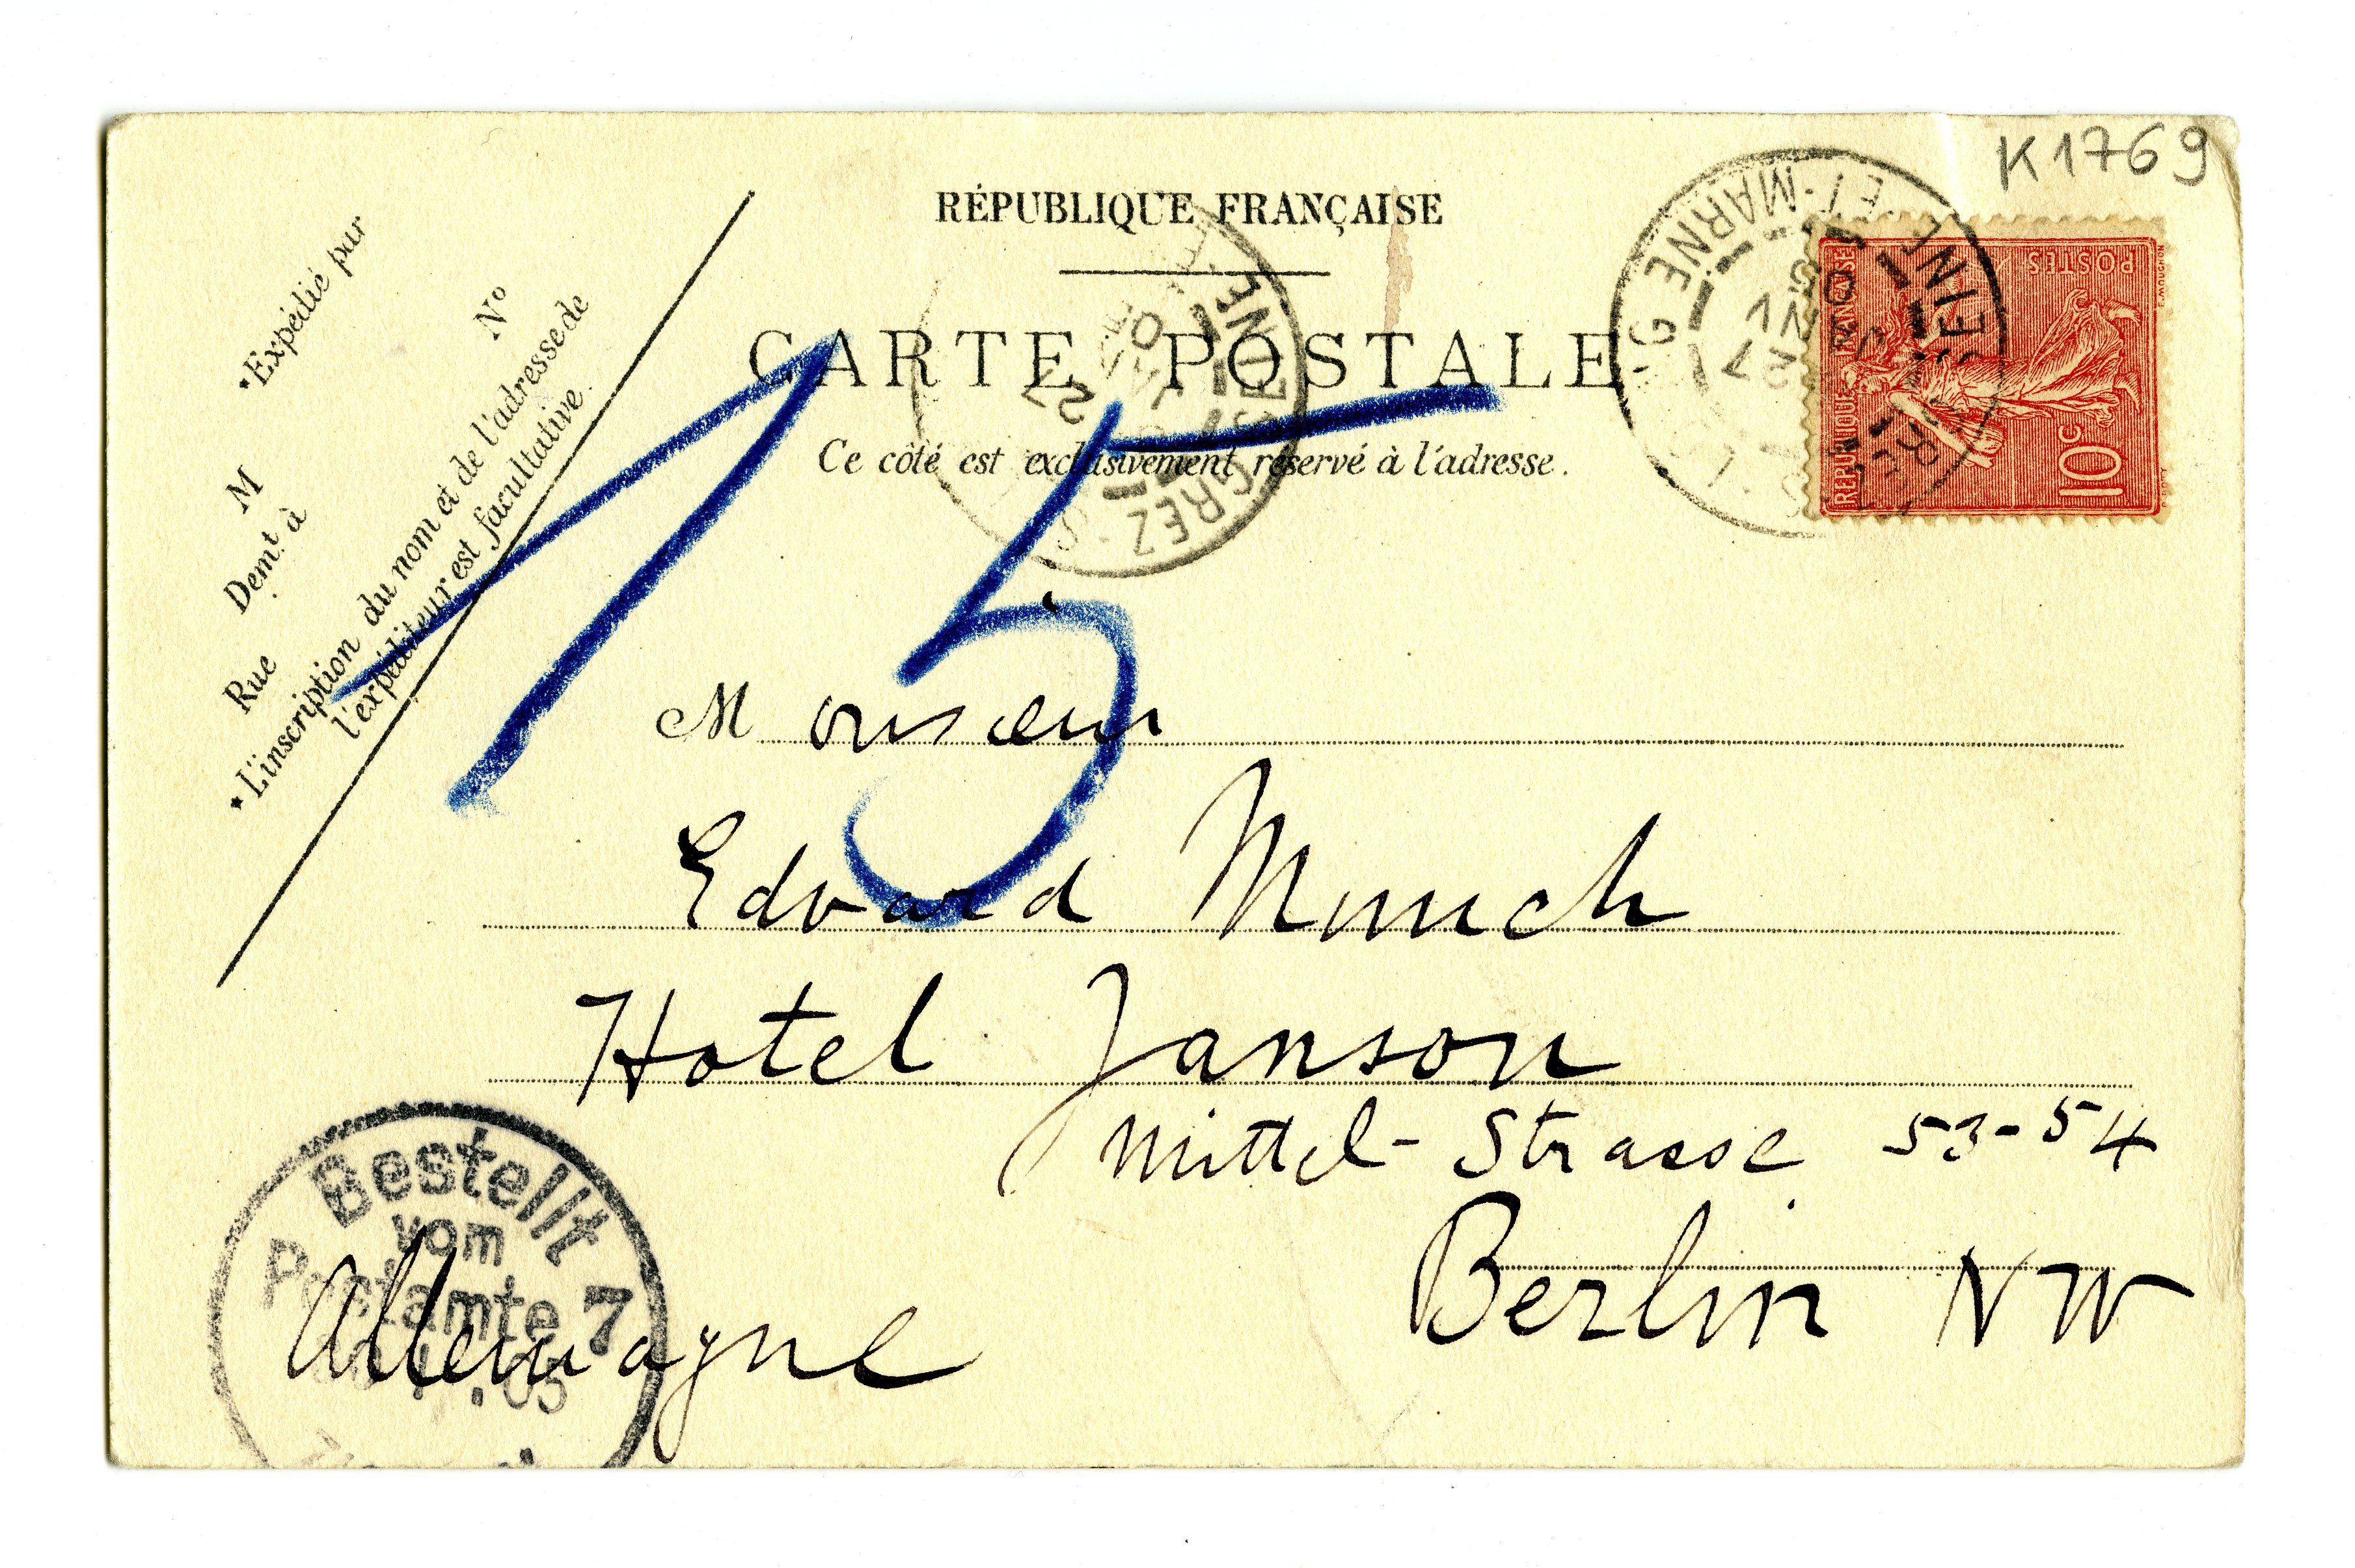 K1769
RÉPUBLIQUE FRANÇAISE
CARTE POSTALE
Ce côté est exclusivement réservé à l'adresse.
*Expédié par
M
No
Demt. à
Rue
*L'inscription du nom et de l'adresse de
l'expéditeur est facultative.
GREZ
SEINE
SEINE-ET-MARNE
RÉPUBLIQUE FRANÇAISE
POSTES
10c
15
Monsieur
Edvard Munch
Hotel Janson
Mittel-Strasse 53-54
Berlin NW
Allemagne
Bestellt
vom
Postamte 7
.05